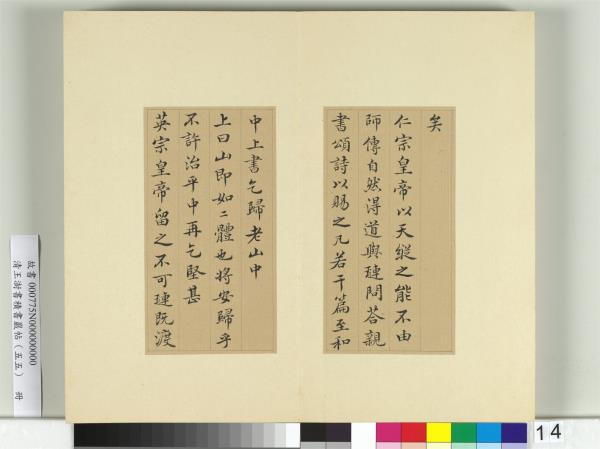 矣
仁宗皇帝以天縱之能不由
師傅自然得道與璉問答親
書頌詩以賜之凡若干篇至和
中上書乞歸老山中
上曰山即如如體也將安歸乎
不許治平中再乞堅甚
英宗皇帝留之不可璉既渡
故書000775N000000000
清王澍書積書巖帖（五五） 冊
14